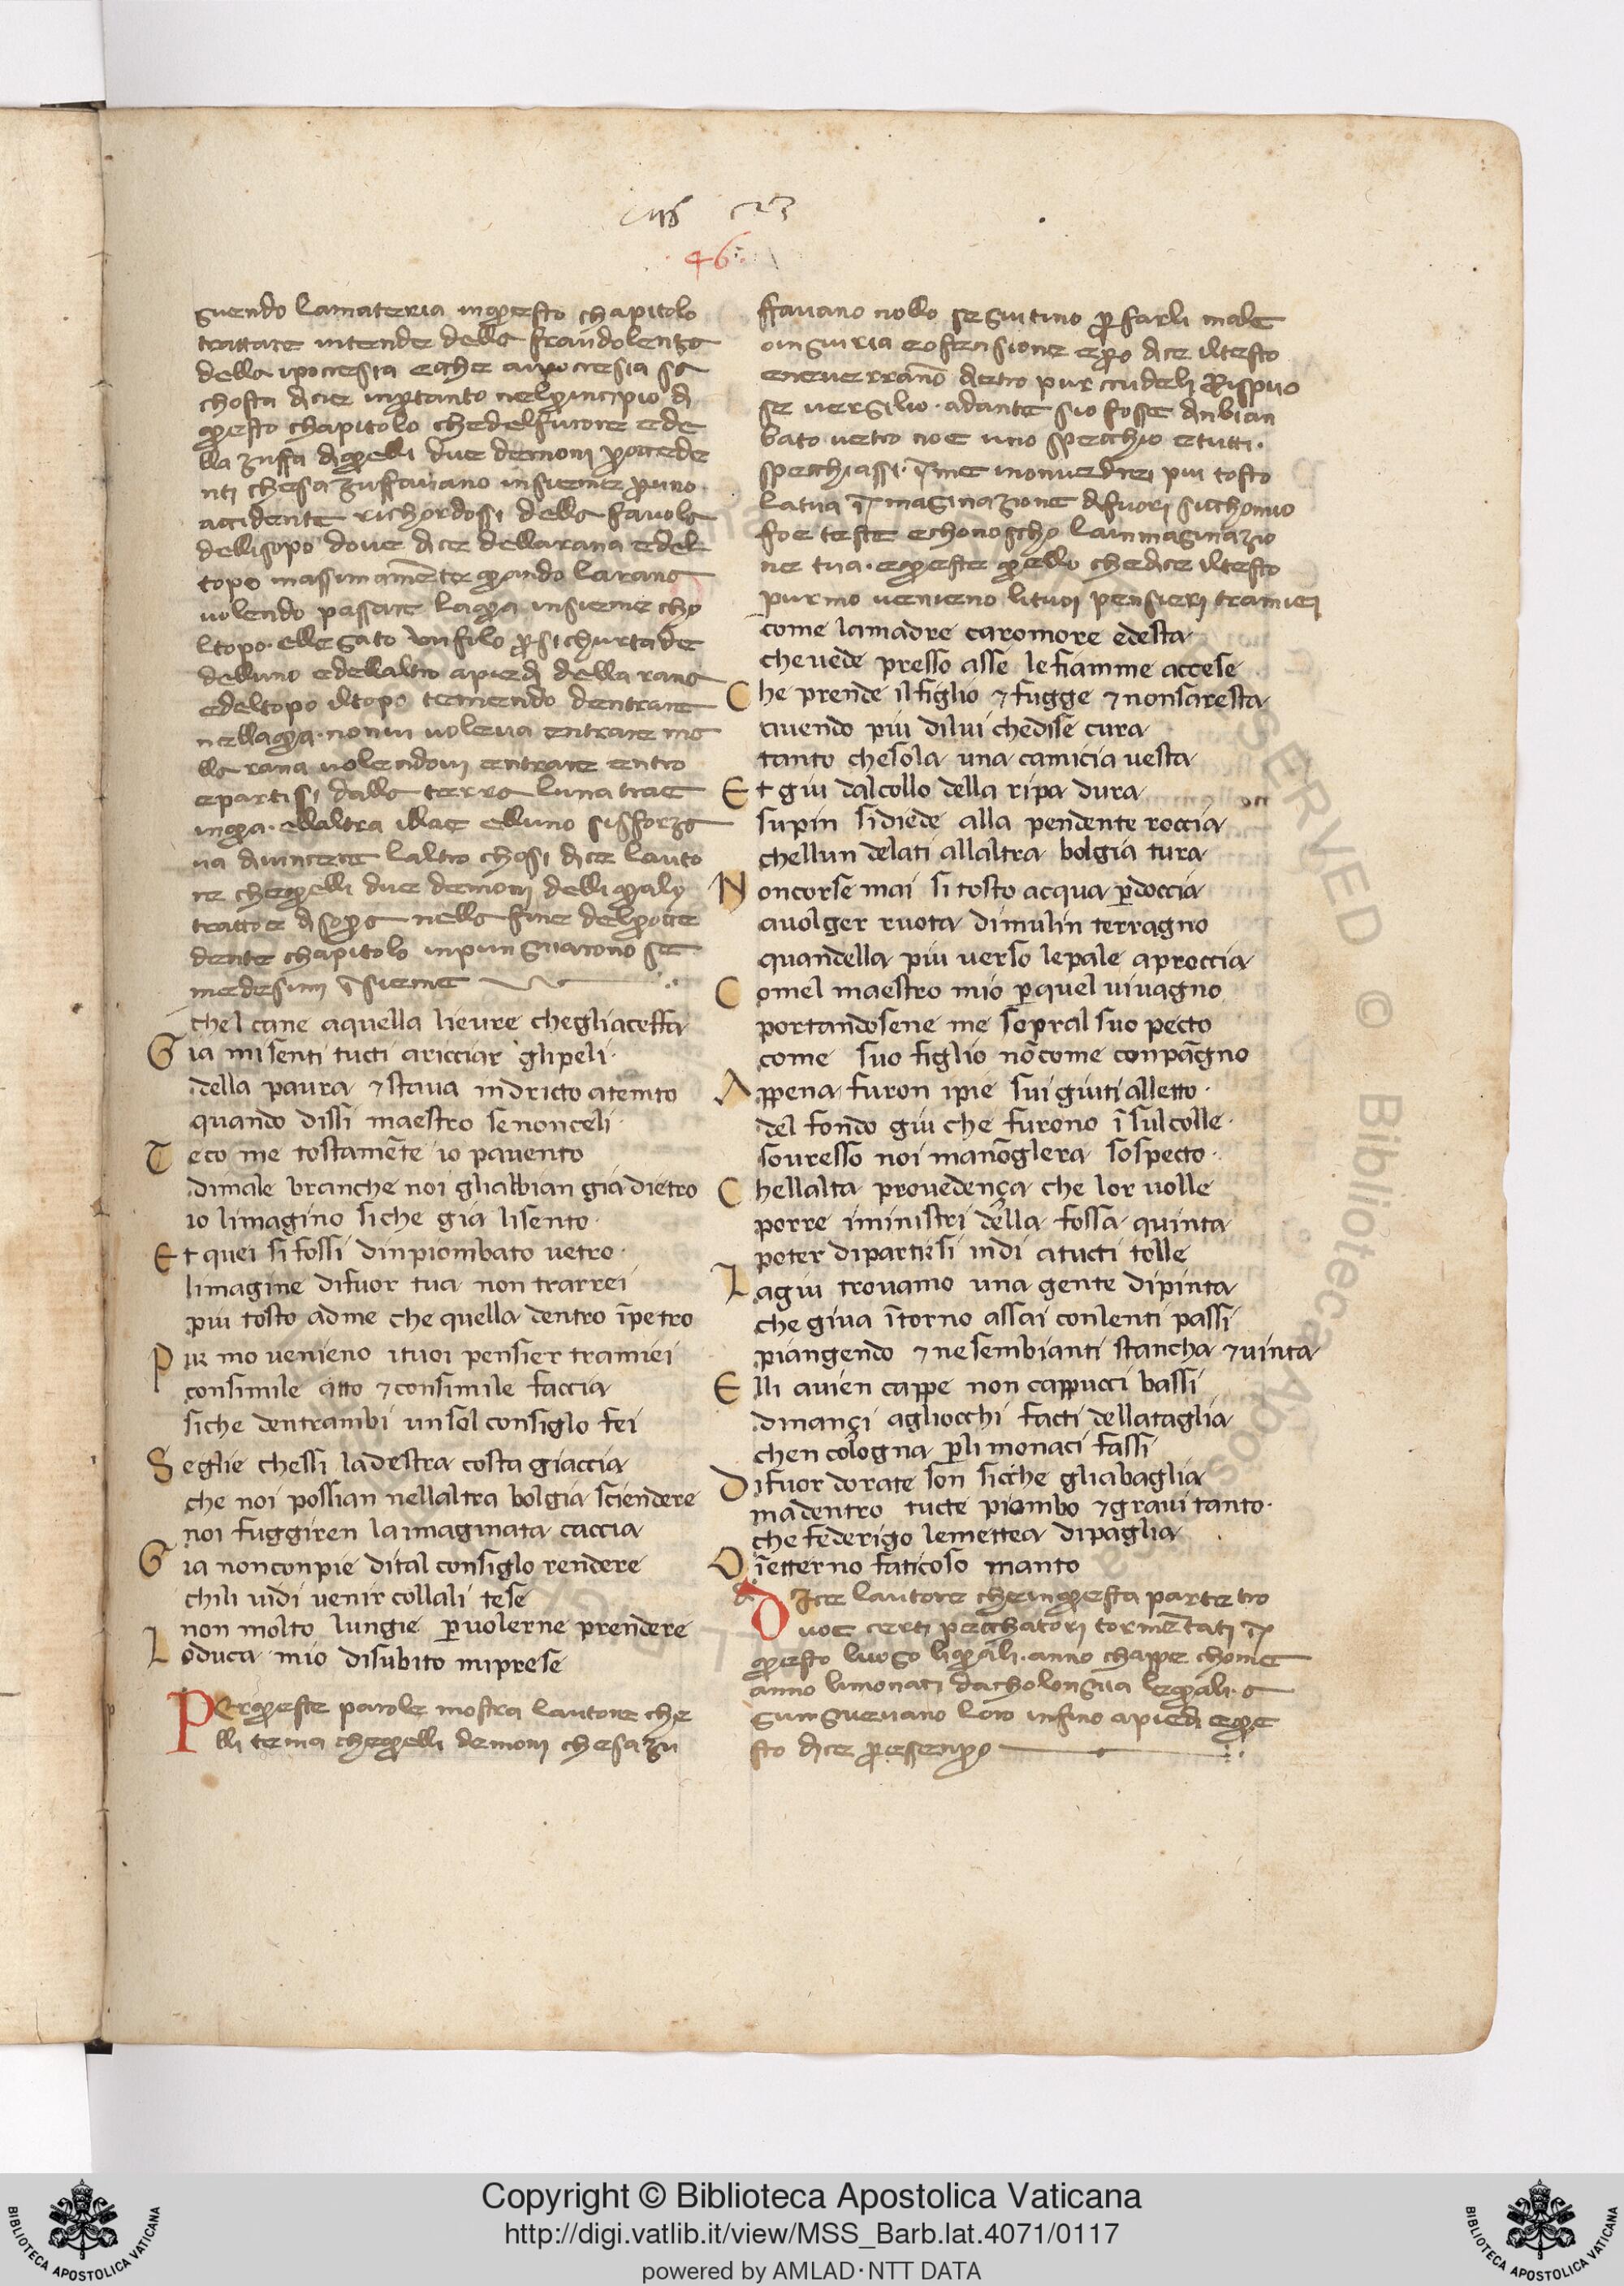 46
guendo lamateria inquesto chapitolo
trattare intende della fraudolenza
della ipocresia eche aipocresia sa
chosta dicie inpertanto nelprincipio di
questo chapitolo chedelfurore ede
lla zuffa diquelli due demonj procede
ntj chesazuffauano insieme peruno
accidente richordossi della fauola
dellisopo doue dice dellarana edel
topo massimamēte quando larana
uolendo passare laqua insieme cho
ltopo· ellegato unfilo persichurtade
delluno edellaltro apiedi della rana
edeltopo iltopo temendo dentrare
nellaqua· nonui uoleua entrare ma
lla rana uolendouj entrare entro
epartisi dalla terra luna trae
inqua· ellaltra illae elluno sisforza
ua diuincere laltro chosi dice lauto
re chequelli due demonj delli qualy
trattoe disopra nella fine delprocie
dente chapitolo inpunguarono se
medesimj īsieme
chel cane aquella lieure chegliaceffa
Gia misenti tucti aricciar glipeli·
della paura ⁊ staua indricto atento
quando dissi maestro senonceli·
Teco me tostamēte io pauento
dimale branche noi gliabbian gia dietro
io limagino siche gia lisento·
Et quei si fossi dinpiombato uetro·
limagine difuor tua non trarrei
piu tosto adme che quella dentro īpetro
Pur mo uenieno ituoi pensier tramiei
consimile atto ⁊ consimile faccia
siche dentrambi unsol consiglo fei
Seglie chessi ladestra costa giaccia
che noi possian nellaltra bolgia sciendere
noi fuggiren la imaginata caccia
Gia nonconpie dital consiglo rendere
chili uidi uenir collali tese
non molto lungie peruolerne prendere
Loduca mio disubito miprese
Perqueste parole mostra lautore che
lli tema chequelli demonj chesazu
ffauano nollo seguitino per farli male
oinguiria eofensione epero dice iltesto
eneuerranno dietro pur crudelj Rispuo
se uergilio· adante sio fosse dinbian
bato uetro noe uno specchio etutti·
specchiassi· īme inonuedrei piu tosto
latua īmaginazione difuorj sicchomio
foe teste echonoscho lainmaginazio
ne tua· equeste quello chedice iltesto
purmo uenieno lituoj pensierj tramiej
come lamadre caromore edesta
cheuede presso asse lefiamme accese
Che prende ilfiglio ⁊ fugge ⁊ nonsaresta
auendo piu dilui chedise cura
tanto chesola una camicia uesta
Et giu dalcollo della ripa dura
supin sidiede alla pendente roccia
chellun delati allaltra bolgia tura
Noncorse mai si tosto acqua perdoccia
auolger ruota dimulin terragno
quandella piu uerso lepale aproccia
Comel maestro mio perquel uiuagno
portandosene me sopral suo pecto
come suo figlio nōcome conpāgno
Appena furon ipie sui giuti alletto·
del fondo giu che furono īsulcolle·
souresso noi manōglera sospecto·
Chellalta prouedença che lor uolle
porre iministri della fossa quinta
poter dipartirsi indi atucti tolle
Lagiu trouamo una gente dipinta
che giua ītorno assai conlenti passi
piangendo ⁊ nesembianti stancha ⁊ uinta
Elli auien cappe non cappucci bassi
dinançi agliocchi facti dellataglia
chen cologna perli monaci fassi
Difuor dorate son sicche gliabaglia
madentro tucte piombo ⁊ graui tanto·
che federigo lemettea dipaglia
Oīetterno faticoso manto
Dice lautore cheinquesta parte tro
uoe certi pecchatorj tormētati ī
questo luogo liquali· anno chappe chome
anno limonaci dacholongnia lequali· a
giungneuano loro infino apiedi eque
sto dice peressenpro
Copyright © Biblioteca Apostolica Vaticana
http://digi.vatlib.it/view/MSS_Barb.lat.4071/0117
powered by AMLAD·NTT DATA
BIBLIOTECA APOSTOLICA VATICANA
BIBLIOTECA APOSTOLICA VATICANA